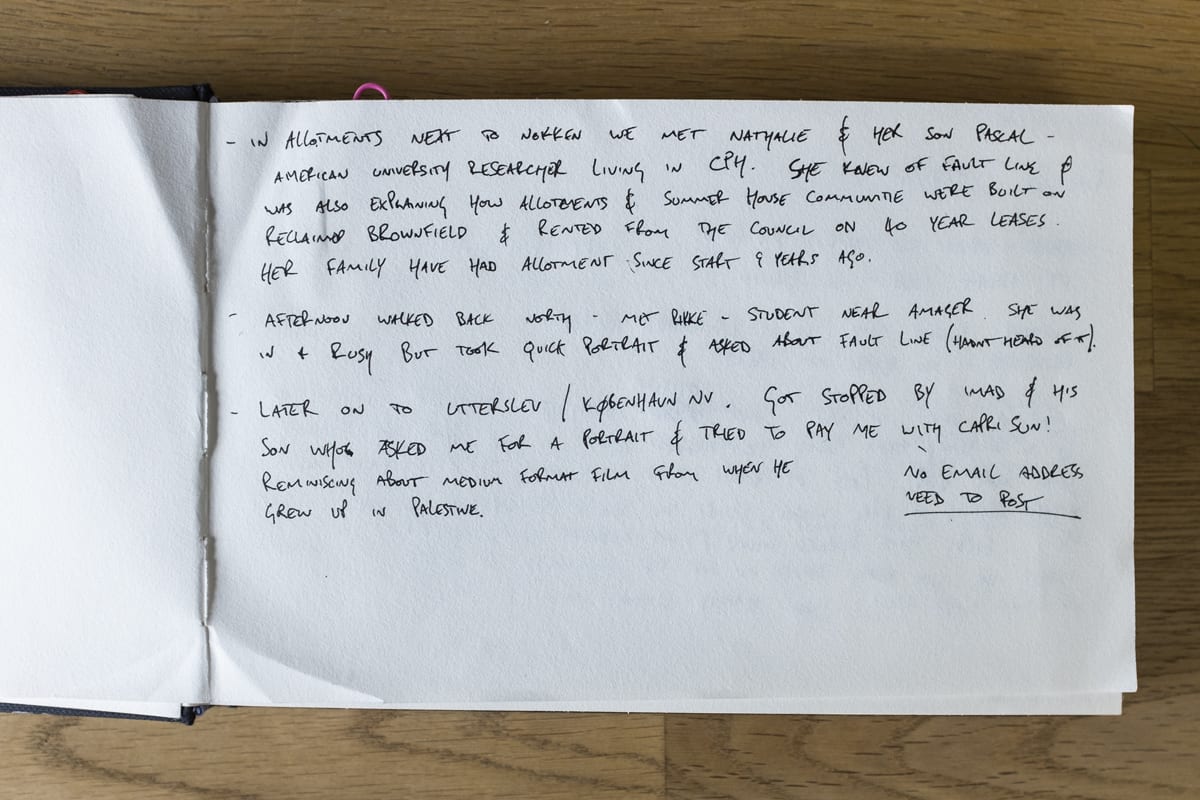 - IN ALLOTMENTS NEXT TO NOKKEN WE MET NATHALIE & HER SON PASCAL -
AMERICAN UNIVERSITY RESEARCHER LIVING IN CPH. SHE KNEW OF FAULT LINE &
WAS ALSO EXPLAINING HOW ALLOTMENTS & SUMMER HOUSE COMMUNITIE WERE BUILT ON
RECLAIMED BROWNFIELD & RENTED FROM THE COUNCIL ON 40 YEAR LEASES.
HER FAMILY HAVE HAD ALLOTMENT SINCE START 9 YEARS AGO.
- AFTERNOON WALKED BACK NORTH - MET RIKKE - STUDENT NEAR AMAGER. SHE WAS
IN A RUSH BUT TOOK QUICK PORTRAIT & ASKED ABOUT FAULT LINE (HADNT HEARD OF IT).
- LATER ON TO UTTERSLEV / KØBENHAVN NV. GOT STOPPED BY IMAD & HIS
SON WHO ASKED ME FOR A PORTRAIT & TRIED TO PAY ME WITH CAPRI SUN!
REMINISCING ABOUT MEDIUM FORMAT FILM FROM WHEN HE
GREW UP IN PALESTINE.
NO EMAIL ADDRESS
NEED TO POST